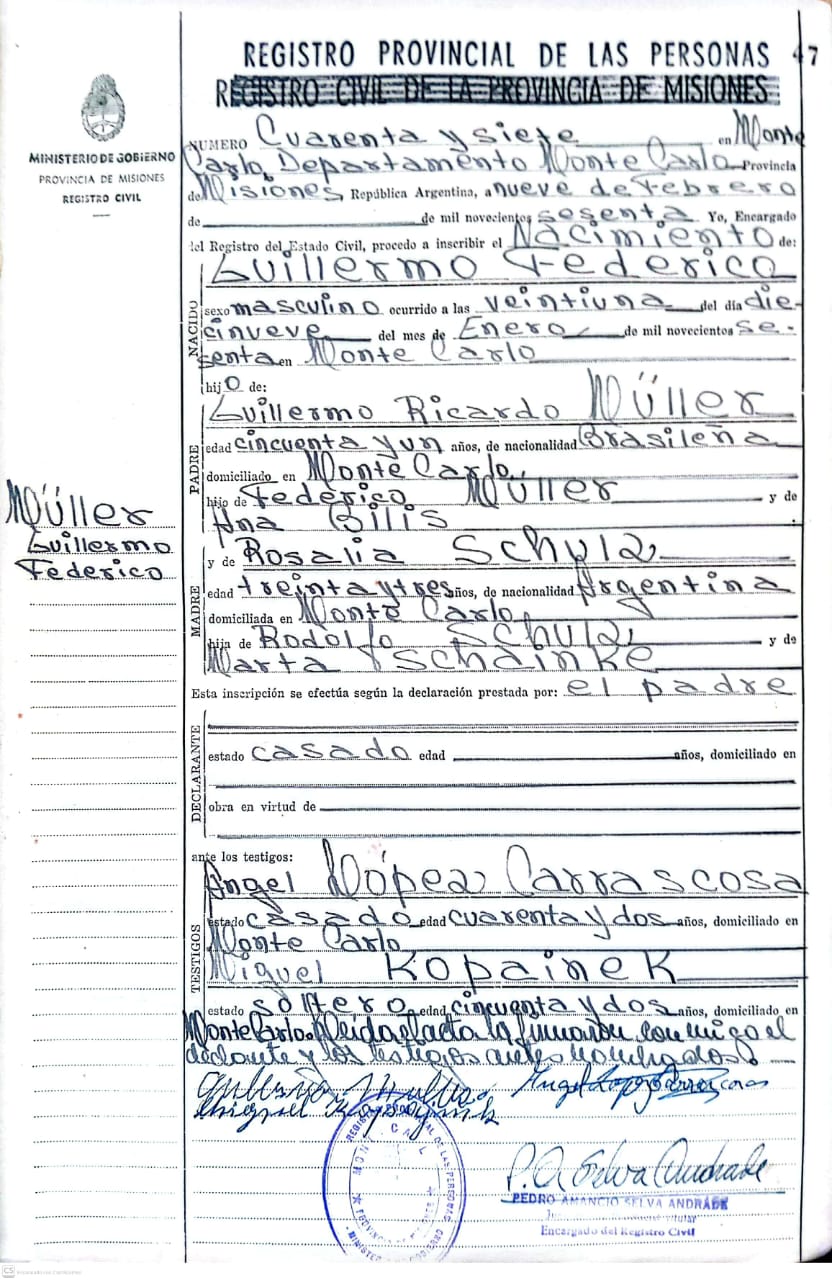 REGISTRO PROVINCIAL DE LAS PERSONAS 47
REGISTRO CIVIL DE LA PROVINCIA DE MISIONES
MINISTERIO DE GOBIERNO
PROVINCIA DE MISIONES
REGISTRO CIVIL
NUMERO Cuarenta y siete en Monte
Carlo, Departamento Monte Carlo Provincia
de Misiones República Argentina, a nueve de Febrero
de de mil novecientos sesenta Yo, Encargado
del Registro del Estado Civil, procedo a inscribir el Nacimiento de:
NACIDO
Guillermo Federico
sexo masculino ocurrido a las veintiuna del día die-
cinueve del mes de Enero de mil novecientos se-
senta en Monte Carlo
hijo de:
PADRE
Guillermo Ricardo Müller
edad cincuenta y un años, de nacionalidad Brasileña
domiciliado en Monte Carlo,
hijo de Federico Müller y de
Ana Bilis
Müller
Guillermo
Federico
MADRE
y de Rosalia Schulz
edad treinta y tres años, de nacionalidad Argentina
domiciliada en Monte Carlo,
hija de Rodolfo Schulz, y de
Marta Tschainke
Esta inscripción se efectúa según la declaración prestada por: el padre
DECLARANTE
estado casado edad años, domiciliado en
obra en virtud de
ante los testigos:
TESTIGOS
Angel López Carrascosa
estado casado edad cuarenta y dos años, domiciliado en
Monte Carlo,
Miguel Kopainek
estado soltero edad cincuenta y dos años, domiciliado en
Monte Carlo. Leida el acta la firmaron conmigo el
declarante y los testigos antes nombrados.
P. A. Selva Andrade
PEDRO AMANCIO SELVA ANDRADE
Encargado del Registro Civil
CS